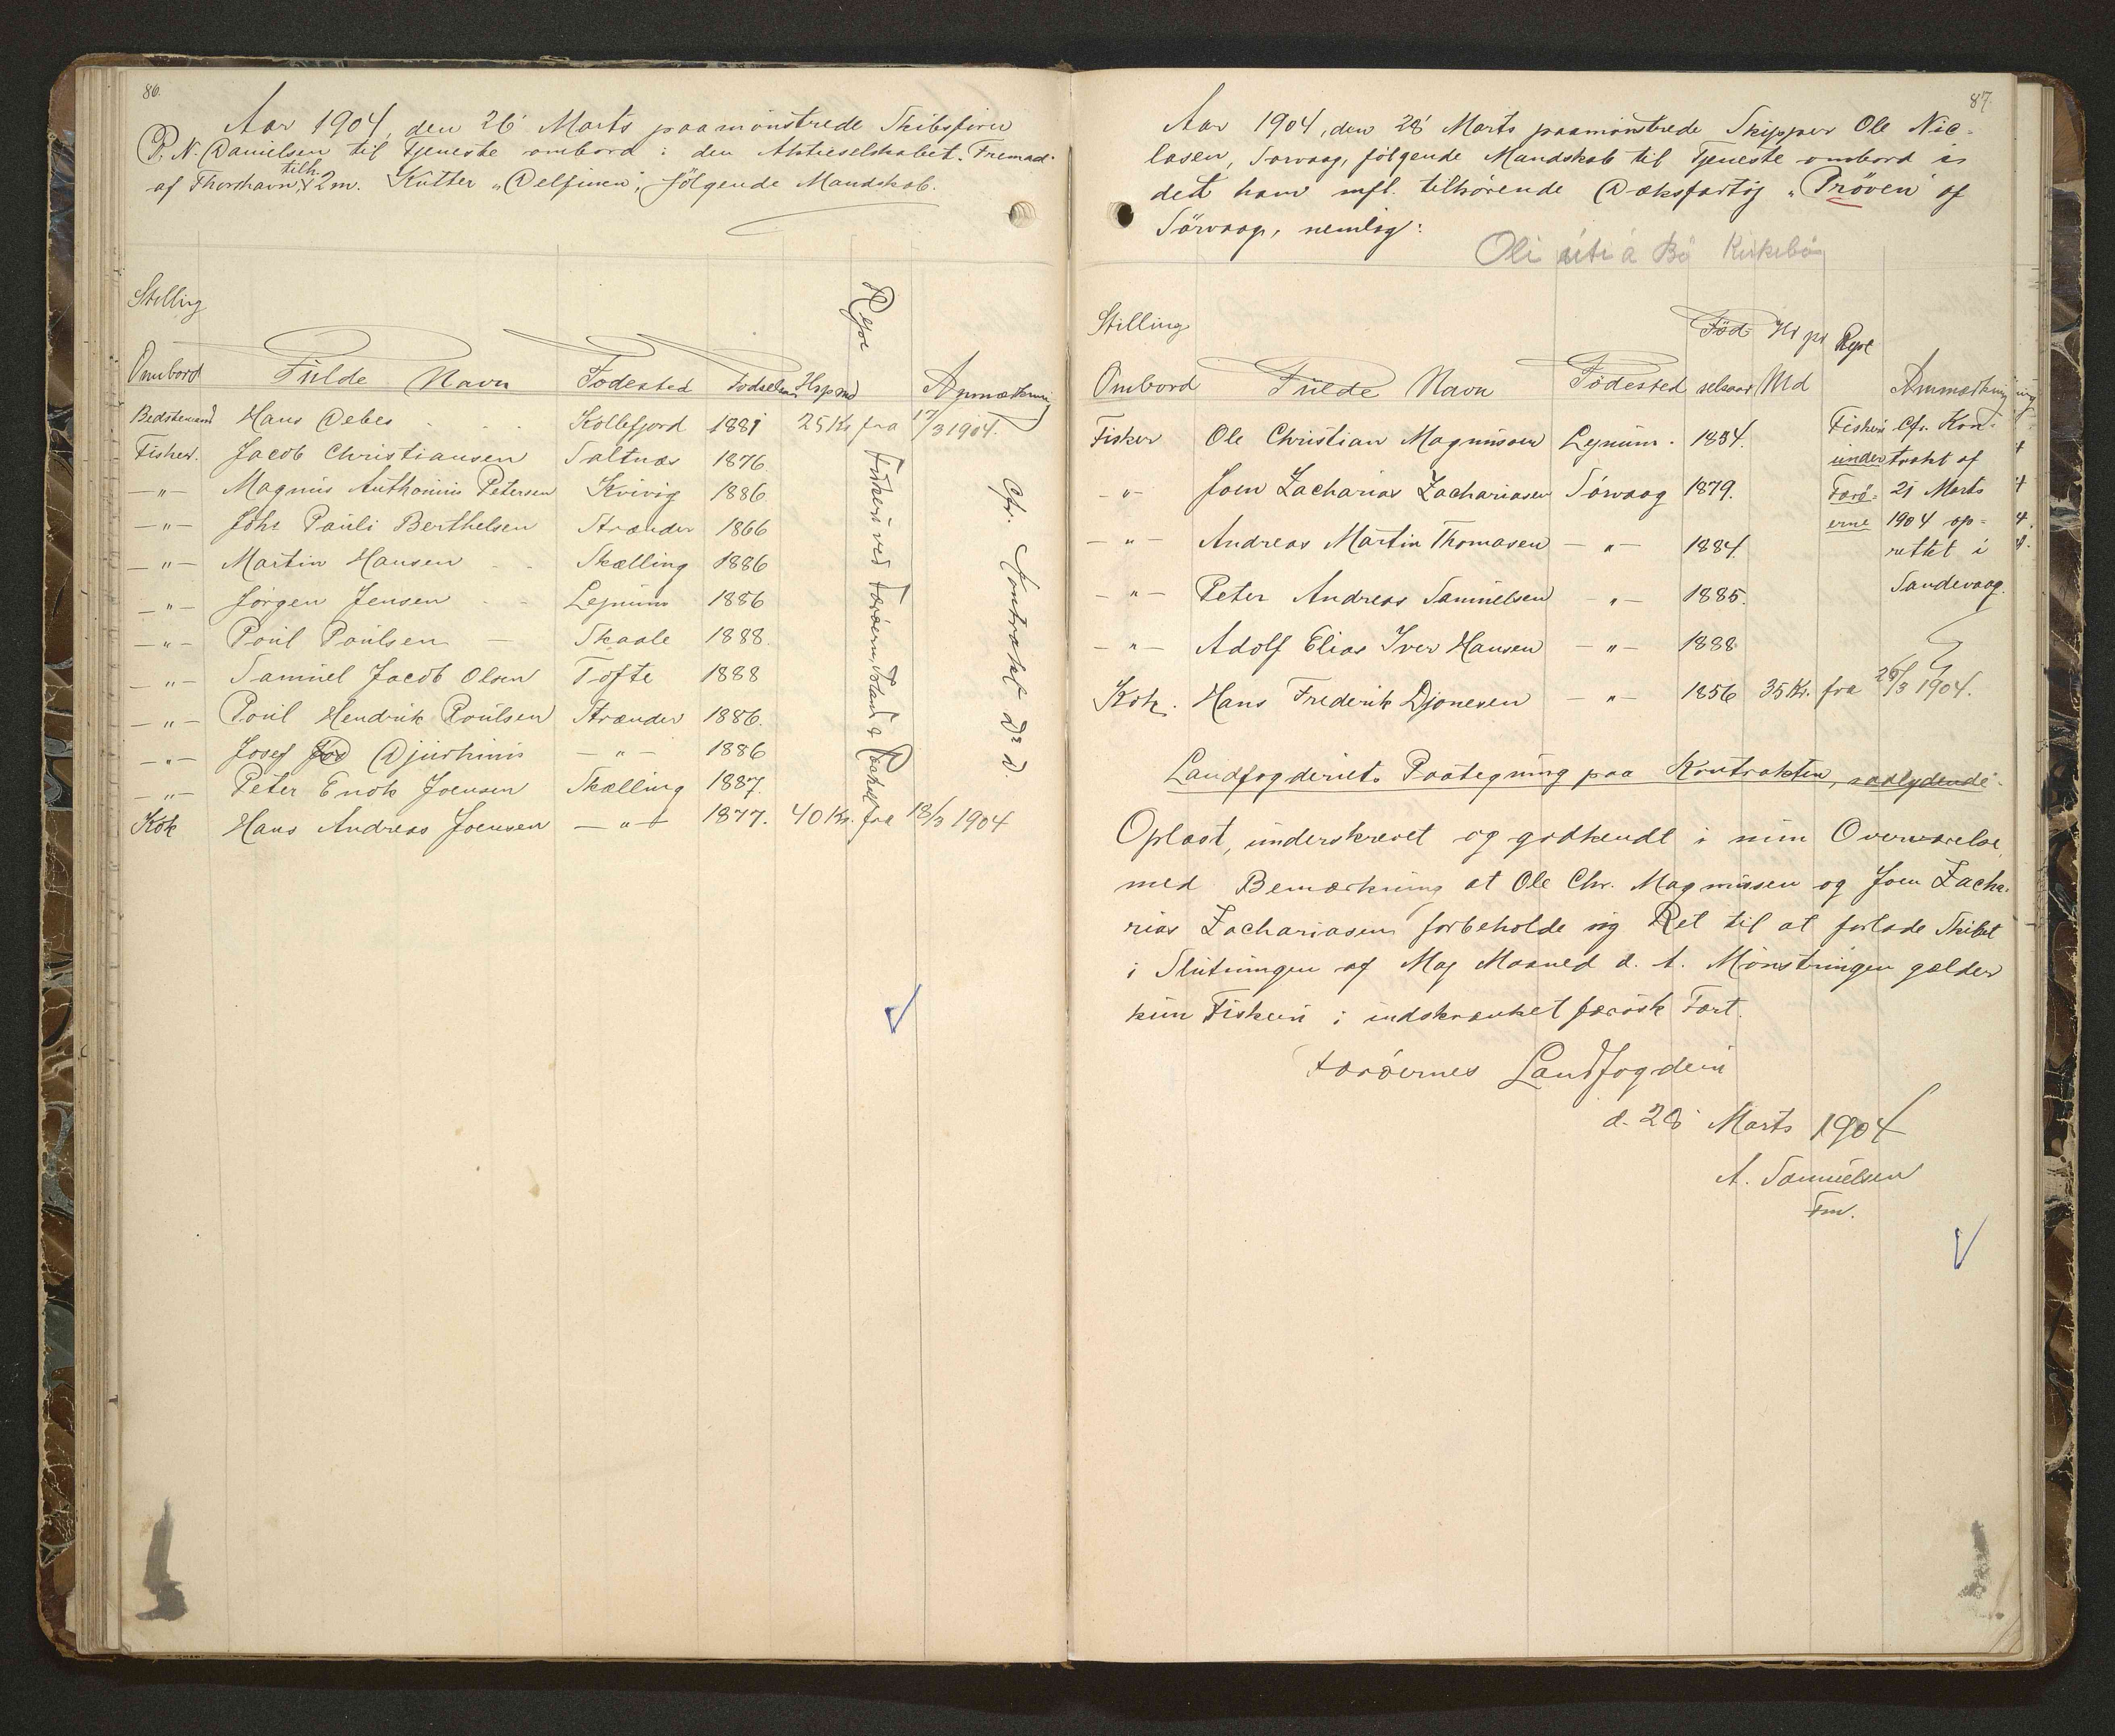 86.
Aar 1904, den 26' Marts paamönstrede Skibsförer
P. N. Danielsen til Tjeneste ombord i den Aktieselskabet "Fremad"
af Thorshavn tilh. 2 m. Kutter "Delfinen", följgende Mandskab.
Stilling Ombord Fulde Navn Födested Födselsaar Hyre Anmærkning
Bedstemand Hans Debes Kollefjord 1881 25 Kr fra 17/3 1904.
Fisker. Jacob Christiansen Saltnæs 1876.
—"— Magnus Anthonius Petersen Kvivig 1886.
—"— Johs Pauli Berthelsen Strænder 1866
—"— Martin Hansen Skælling 1886
—"— Jörgen Jensen Lejnum 1886
—"— Poul Poulsen — Skaale 1888.
—"— Samuel Jacob Olsen Tofte 1888
—"— Poul Hendrik Poulsen Strænder 1886.
—"— Josef Djurhuus —"— 1886
—"— Peter Enok Joensen Skælling 1887.
Kok Hans Andreas Joensen —"— 1877. 40 Kr. fra 18/3 1904
Rejse
Fiskeri ved Færöerne, Island &
Cfr. Kontrakt D° D.
87.
Aar 1904, den 28' Marts paamönstrede Skipper Ole Nic-
lasen, Sörvaag, fölgende Mandskab til Tjeneste ombord i
det ham mfl. tilhörende Dæksfartöj "Pröven" af
Sörvaag, nemlig:
Oli úti á Bö Kirkebö
Stilling Föd- Kr pr Rejse
Ombord Fulde Navn Födested selsaar Md Anmærkning
Fisker Ole Christian Magnussen Lejnum. 1884. Fiskeri Cfr. Kon-
under trakt af
—"— Joen Zacharias Zachariasen Sörvaag 1879. Færö- 21 Marts
erne 1904 op-
—"— Andreas Martin Thomasen —"— 1884. rettet i
—"— Peter Andreas Samuelsen —"— 1885. Sandevaag.
—"— Adolf Elias Iver Hansen —"— 1888
Kok. Hans Frederik Djonesen "— 1856 35 Kr. fra 26/3 1904.
Landfogderiets Paategning paa Kontrakten, saalydende:
Oplæst, underskrevet og godkendt i min Overværelse,
med Bemærkning at Ole Chr. Magnussen og Joen Zacha-
rias Zachariasen forbeholde sig Ret til at forlade Skibet
i Slutningen af Maj Maaned d. A. Mönstringen gælder
kun Fiskeri i indskrænket færöisk Fart.
Færöernes Landfogderi
d. 28' Marts 1904
A. Samuelsen
Fm.